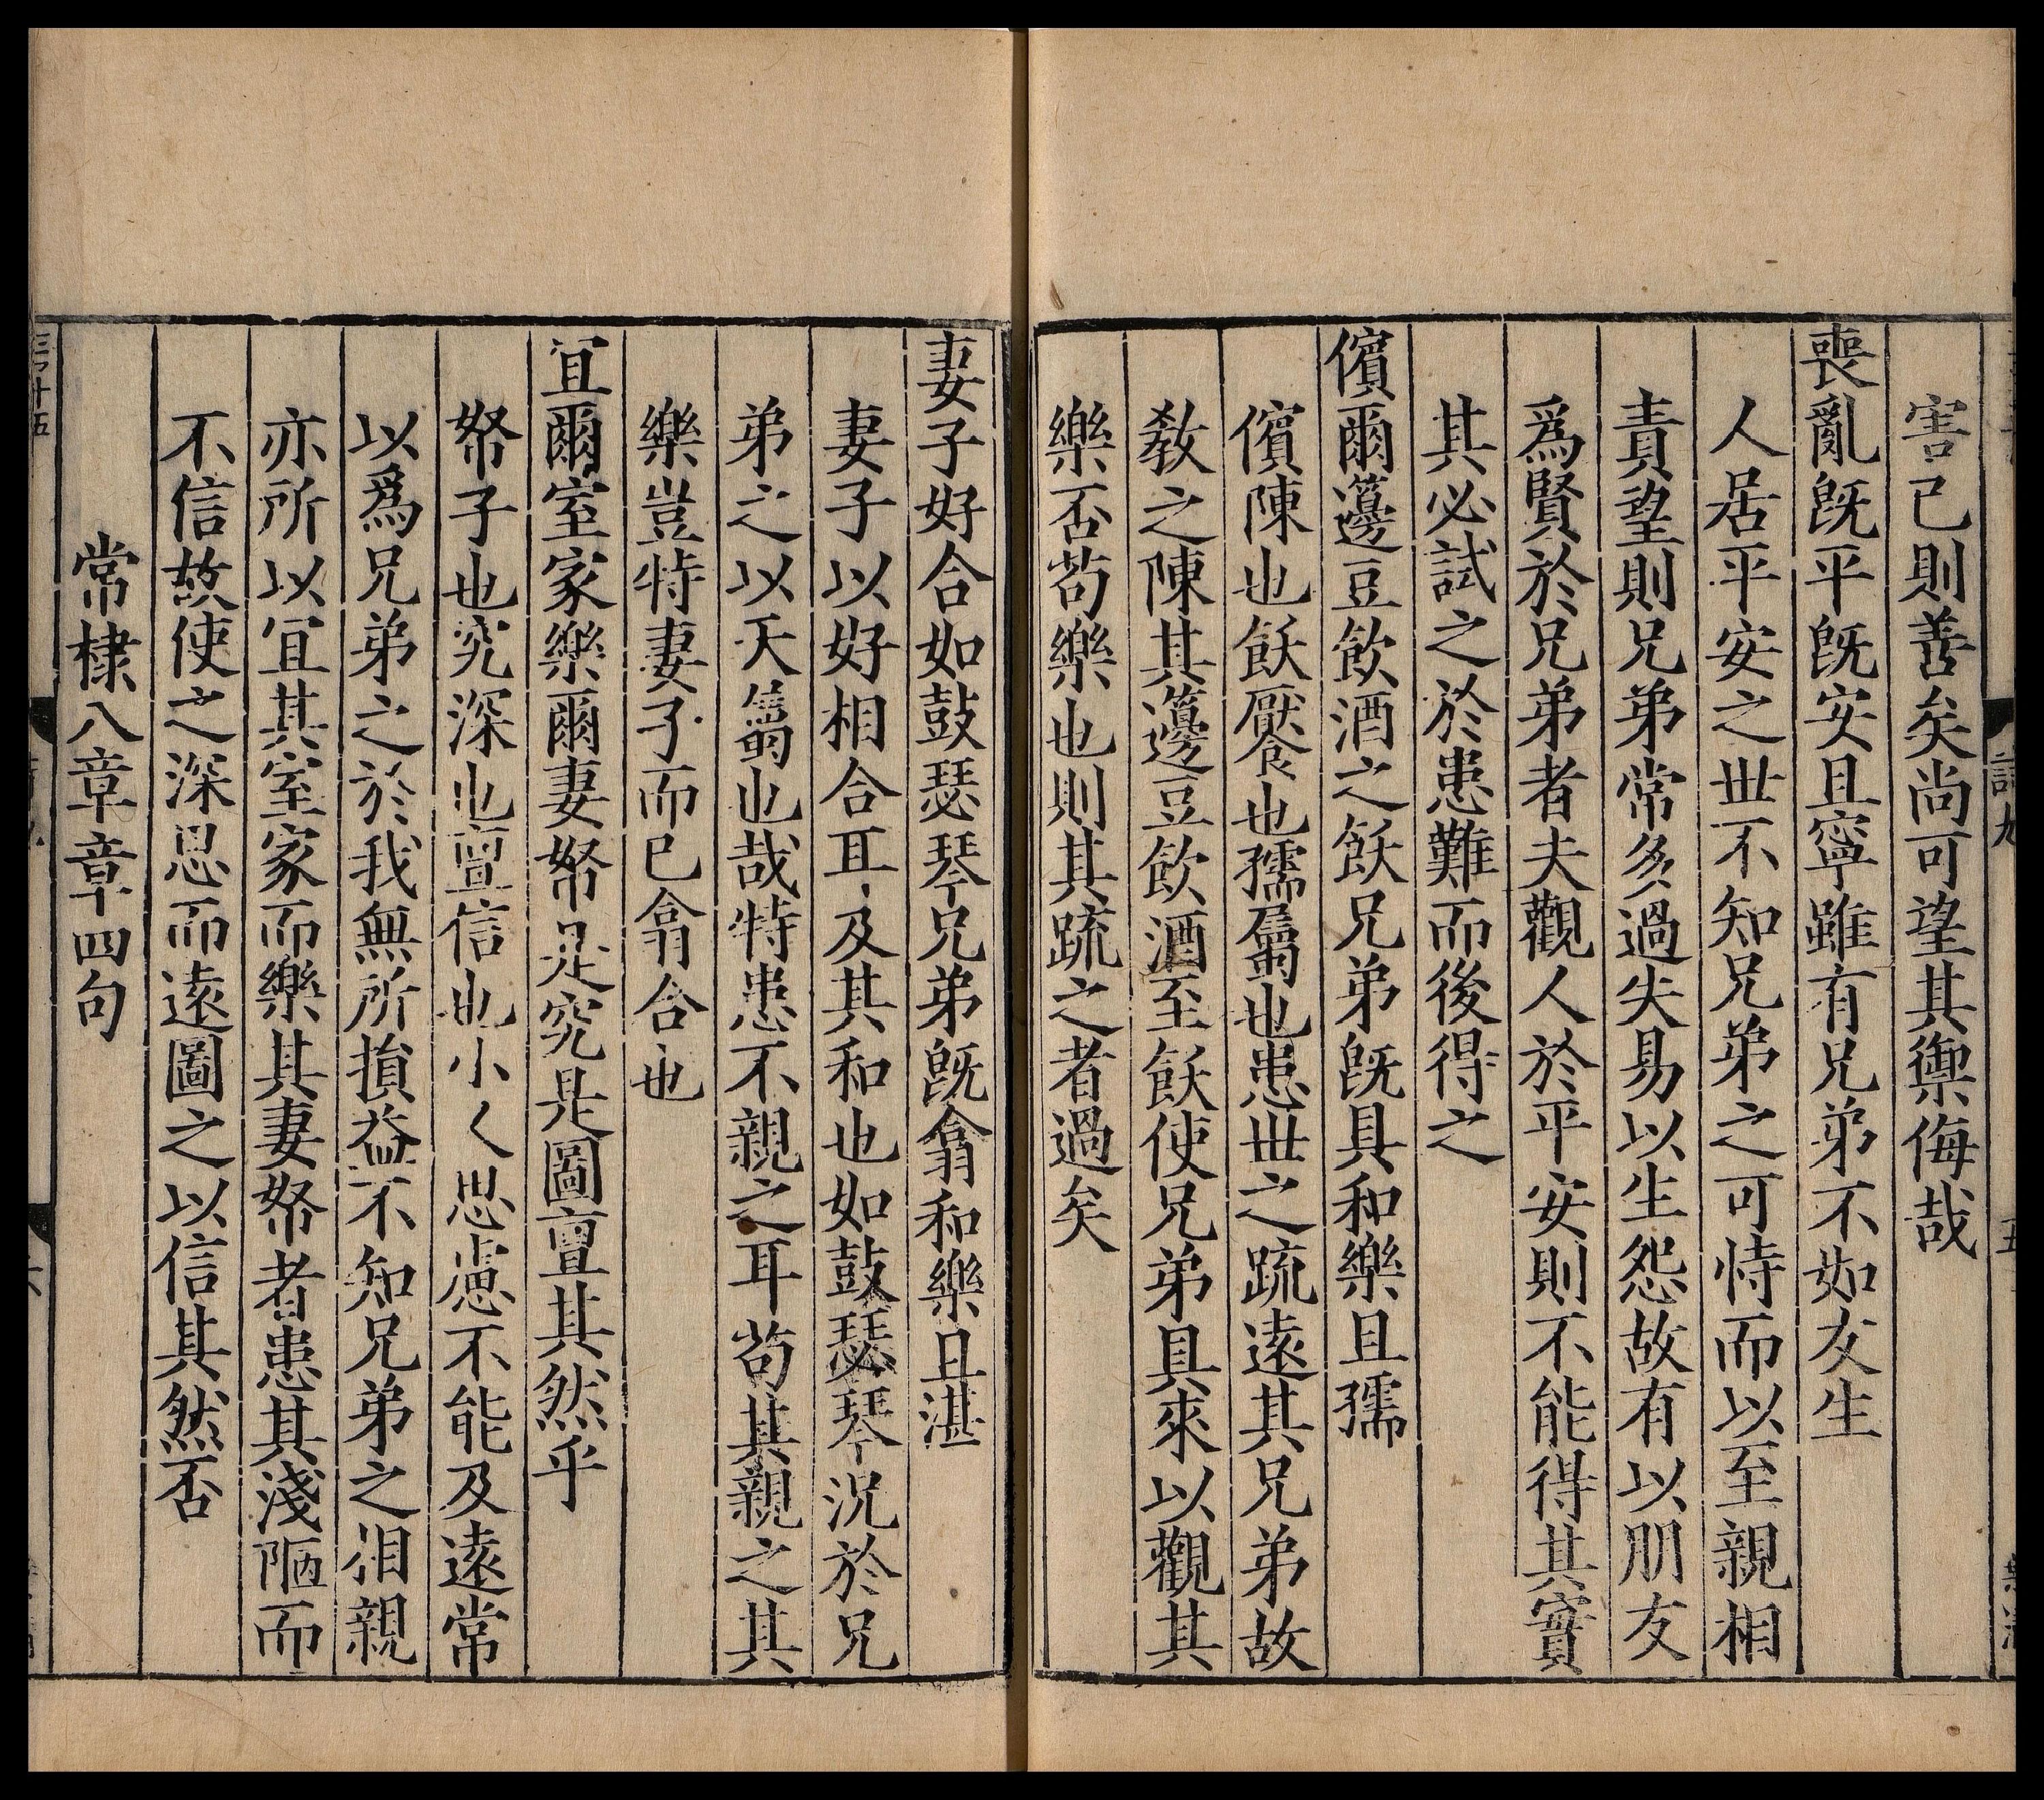 害已則善矣尚可望其禦侮哉
喪亂旣平旣安且寧雖有兄弟不如友生
人居平安之世不知兄弟之可恃而以至親相
責望則兄弟常多過失易以生怨故有以朋友
爲賢於兄弟者夫觀人於平安則不能得其實
其必試之於患難而後得之
儐爾籩豆飲酒之飫兄弟旣具和樂且孺
儐陳也飫饜也孺屬也患世之疏遠其兄弟故
敎之陳其籩豆飲酒至飫使兄弟具來以觀其
樂否苟樂也則其疏之者過矣
妻子好合如鼓瑟琴兄弟旣翕和樂且湛
妻子以好相合耳及其和也如鼓瑟琴況於兄
弟之以天屬也哉特患不親之耳苟其親之其
樂豈特妻子而已翕合也
宜爾室家樂爾妻帑是究是圖亶其然乎
帑子也究深也亶信也小人思慮不能及遠常
以爲兄弟之於我無所損益不知兄弟之相親
亦所以宜其室家而樂其妻帑者患其淺陋而
不信故使之深思而遠圖之以信其然否
常棣八章章四句